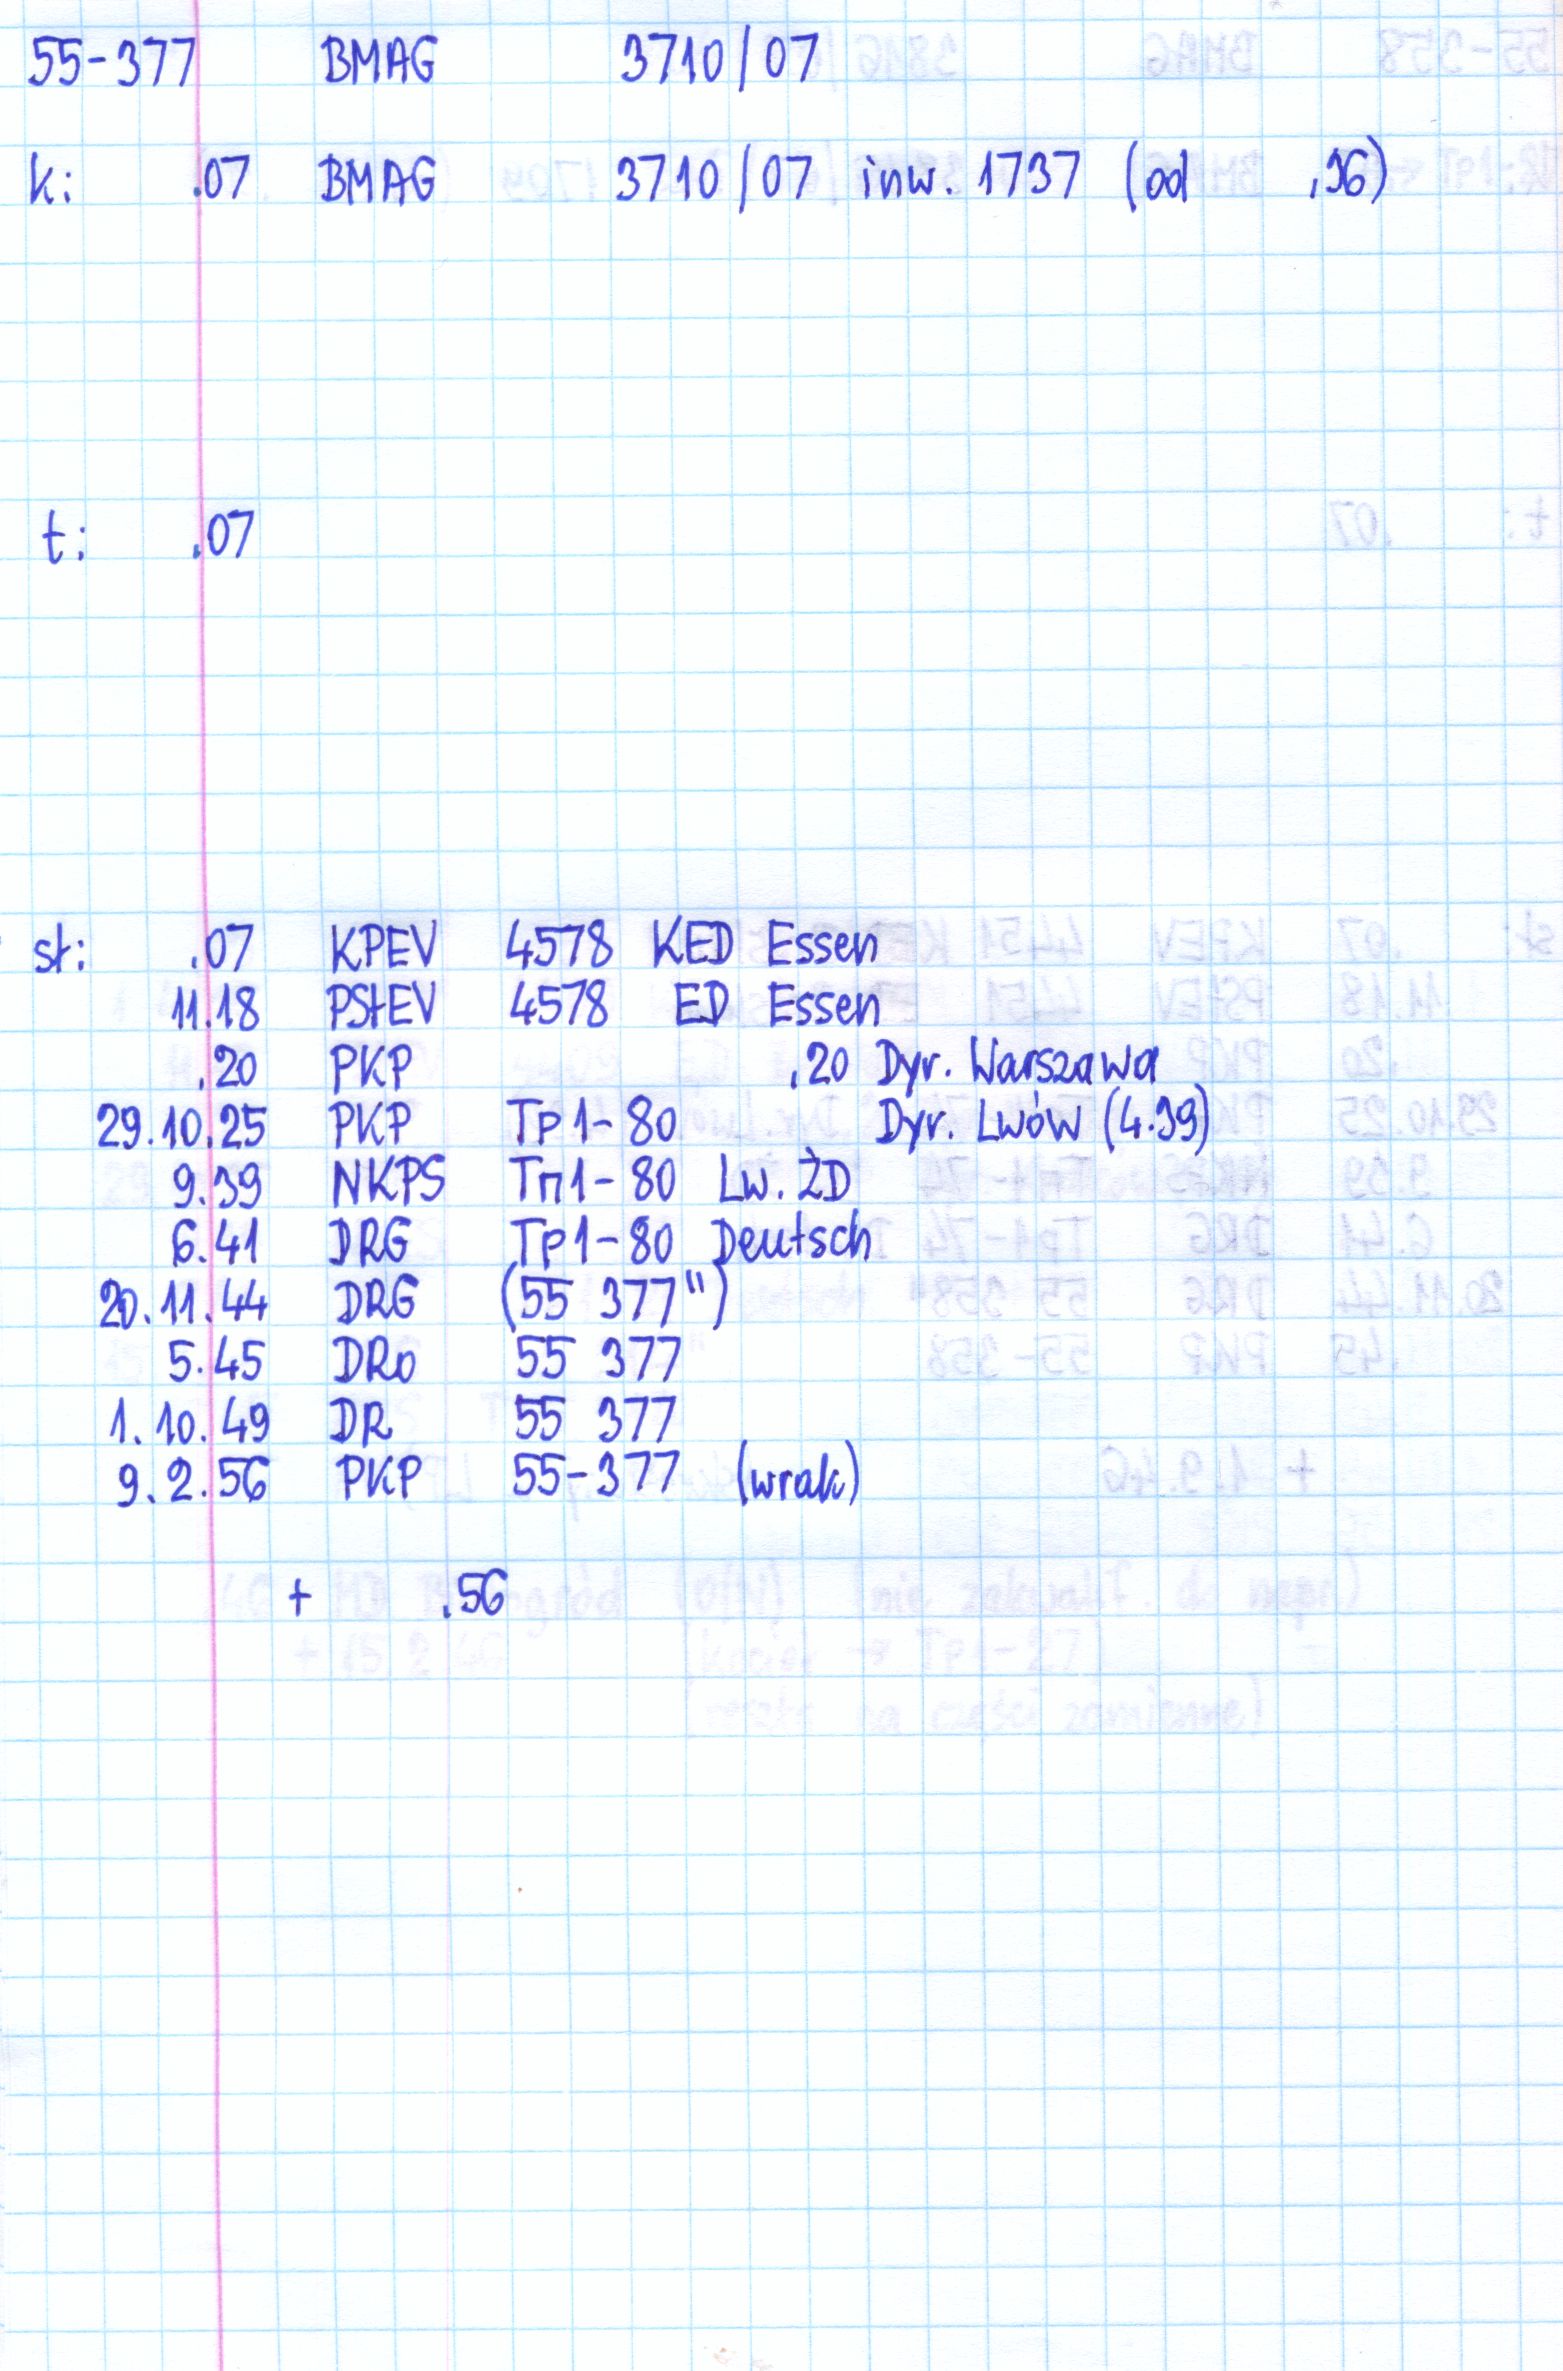 55-377 BMAG 3710/07
k: .07 BMAG 3710/07 inw. 1737 (od .36)
t: .07
st: .07 KPEV 4578 KED Essen
11.18 PStEV 4578 ED Essen
.20 PKP .20 Dyr. Warszawa
29.10.25 PKP Tp1-80 Dyr. Lwów (4.39)
9.39 NKPS Тп1-80 Lw. ŻD
6.41 DRG Tp1-80 Deutsch
20.11.44 DRG (55 377")
5.45 DRo 55 377
1.10.49 DR 55 377
9.2.56 PKP 55-377 (wrak)
+ .56